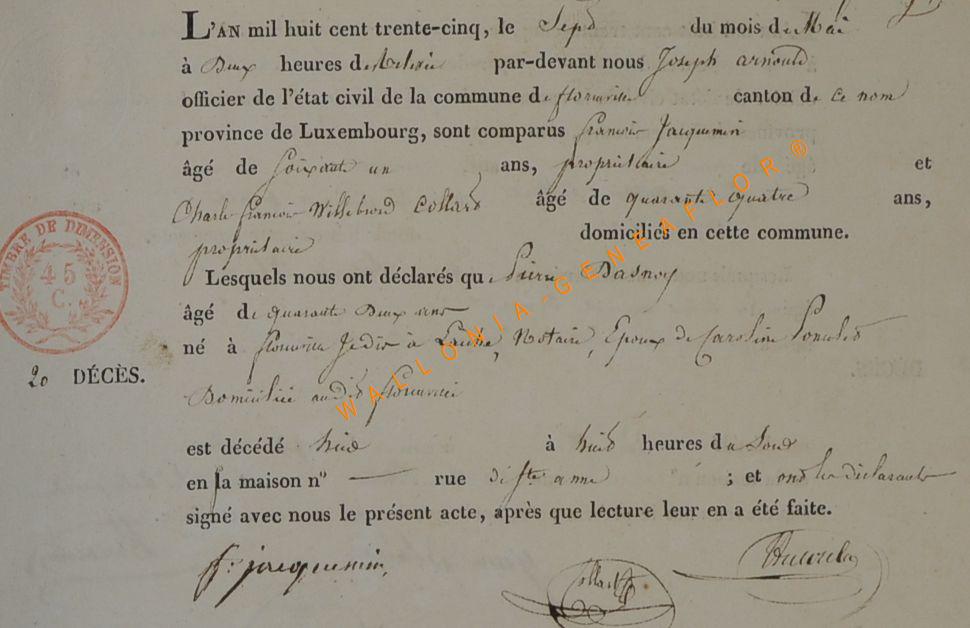 L'AN mil huit cent trente-cinq, le Sept du mois de Mai
à Deux heures de relevée par-devant nous Joseph arnould
officier de l'état civil de la commune de florenville canton de ce nom
province de Luxembourg, sont comparus françois Jacquemin
âgé de soixante un ans, propriétaire et
Charle françois Willebrord Collard âgé de quarante quatre ans,
propriétaire domiciliés en cette commune.
Lesquels nous ont déclarés que Pierre Dasnoy
âgé de quarante Deux ans
né à florenville Je dis à Notaire, Epoux de Caroline
Domicilié audit florenville
est décédé hier à huit heures du Soir
en sa maison n° — rue de ste anne ; et ont les déclarants
signé avec nous le présent acte, après que lecture leur en a été faite.
TIMBRE DE DIMENSION
45
C.
20 DÉCÈS.
f. jacquemin,
Collard
WALLONIA-GENEAFLOR®